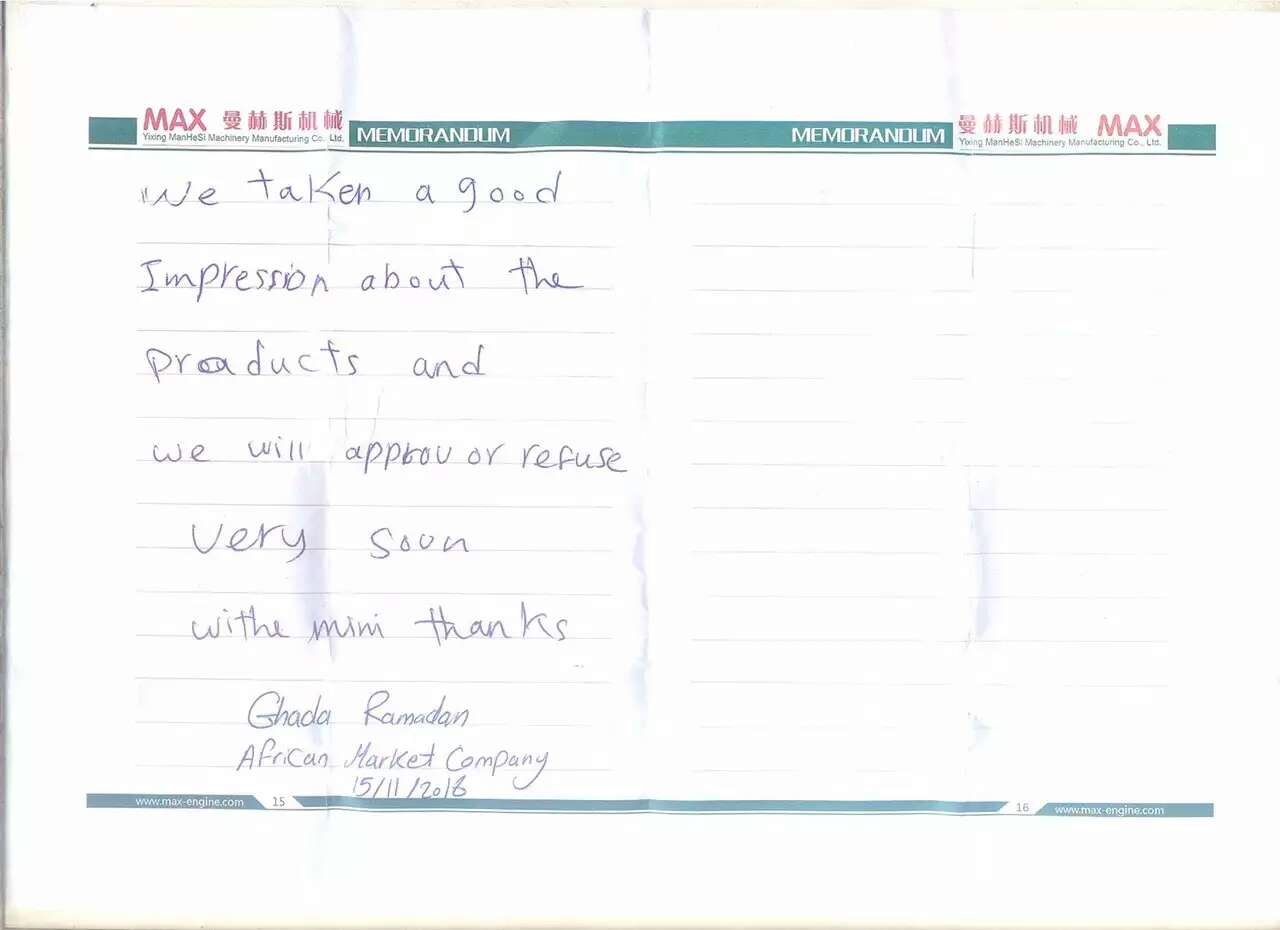 MAX 曼赫斯机械
Yixing ManHeSi Machinery Manufacturing Co., Ltd.
MEMORANDUM
We taken a good
Impression about the
products and
we will approv or refuse
very soon
withe mini thanks
Ghada Ramadan
African Market Company
15/11/2018
www.max-engine.com 15
MEMORANDUM
曼赫斯机械 MAX
Yixing ManHeSi Machinery Manufacturing Co., Ltd.
16 www.max-engine.com